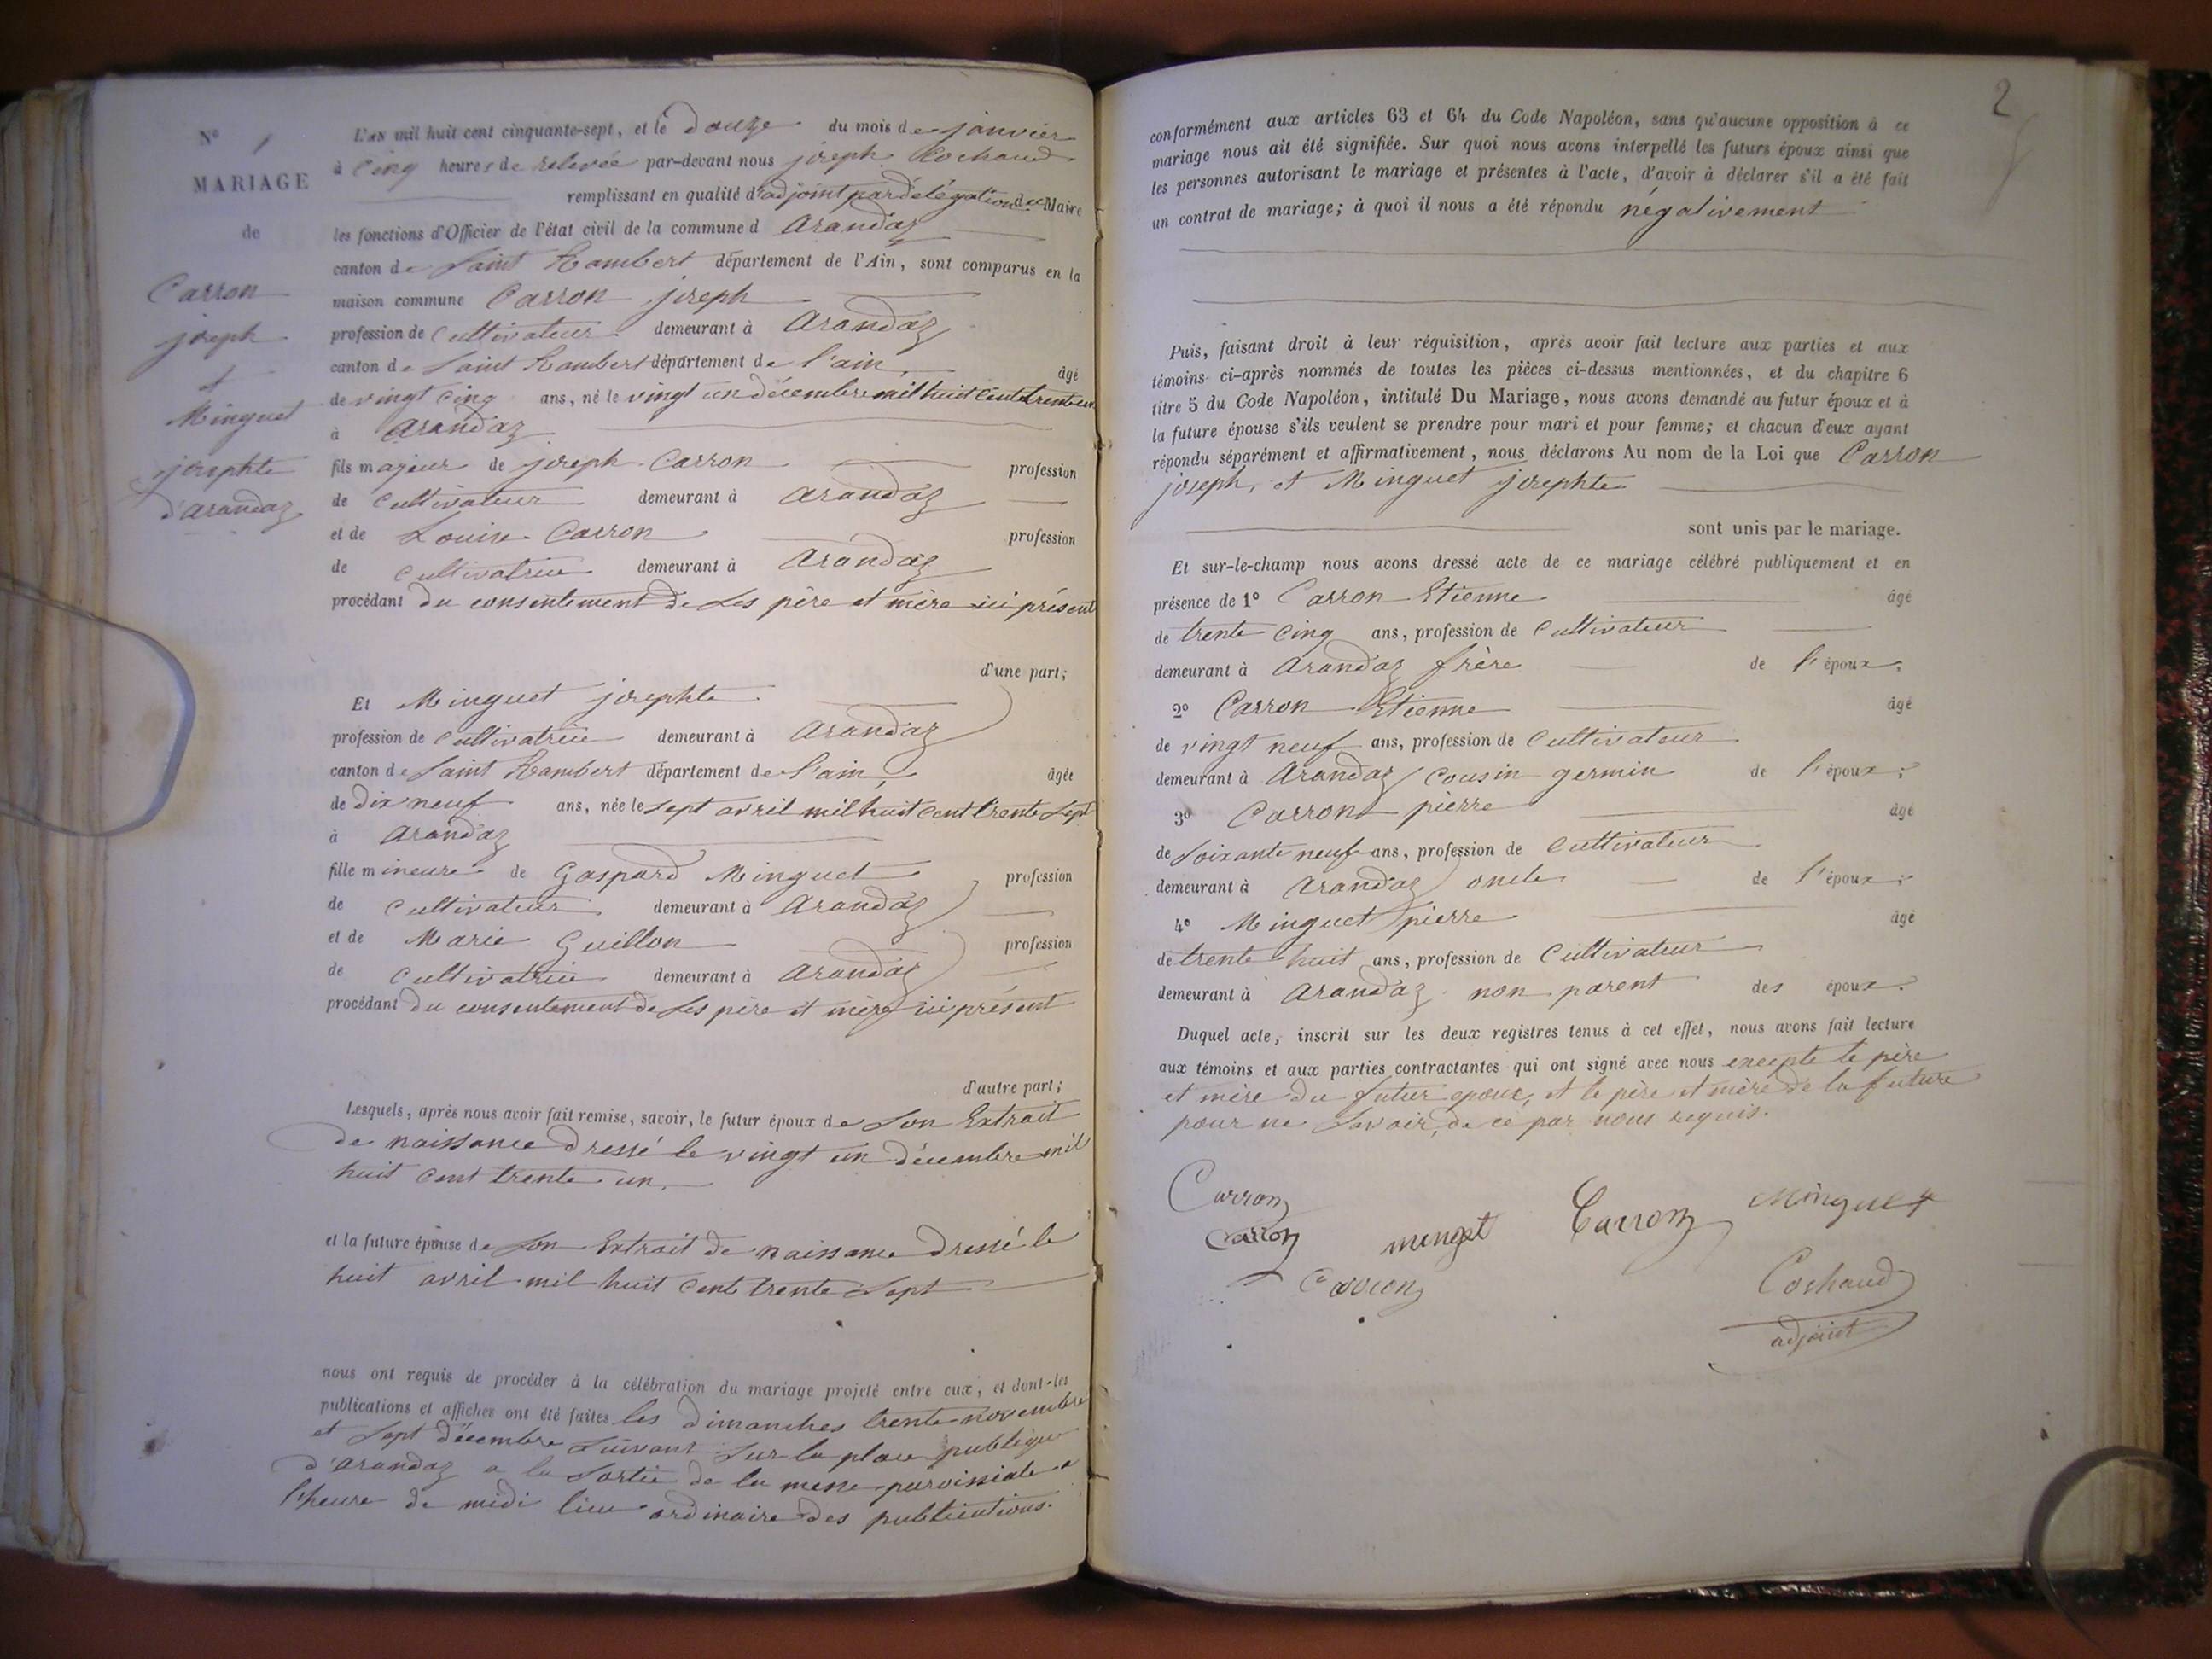 N° 1
MARIAGE
de
Carron
joseph
et
Minguet
josephte
d'arandaz
L'AN mil huit cent cinquante-sept, et le douze du mois de janvier
à cinq heures de relevée par-devant nous joseph Cochaud
remplissant en qualité d'adjoint par délégation du Maire
les fonctions d'Officier de l'état civil de la commune d Arandaz
canton de Saint Rambert département de l'Ain, sont comparus en la
maison commune Carron joseph
profession de Cultivateur demeurant à Arandaz
canton de Saint Rambert département de l'ain, âgé
de vingt cinq ans, né le vingt un décembre mil huit cent trente un
à Arandaz
fils majeur de joseph Carron profession
de Cultivateur demeurant à Arandaz
et de Louise Carron profession
de Cultivatrice demeurant à Arandaz
procédant du consentement de ses père et mère ici présent
d'une part;
Et Minguet josephte
profession de Cultivatrice demeurant à Arandaz
canton de Saint Rambert département de l'ain, âgée
de dix neuf ans, née le sept avril mil huit cent trente sept
à Arandaz
fille mineure de Gaspard Minguet profession
de Cultivateur demeurant à Arandaz
et de Marie Guillon profession
de Cultivatrice demeurant à Arandaz
procédant du consentement de ses père et mère ici présent
d'autre part;
Lesquels, après nous avoir fait remise, savoir, le futur époux de son Extrait
de naissance dressé le vingt un décembre mil
huit cent trente un,
et la future épouse de son Extrait de naissance dressé le
huit avril mil huit cent trente sept
nous ont requis de procéder à la célébration du mariage projeté entre eux, et dont les
publications et affiches ont été faites les dimanches trente novembre
et sept décembre suivant sur la place publique
d'arandaz a la sortie de la messe paroissiale a
l'heure de midi lieu ordinaire des publications.
2
conformément aux articles 63 et 64 du Code Napoléon, sans qu'aucune opposition à ce
mariage nous ait été signifiée. Sur quoi nous avons interpellé les futurs époux ainsi que
les personnes autorisant le mariage et présentes à l'acte, d'avoir à déclarer s'il a été fait
un contrat de mariage; à quoi il nous a été répondu négativement
Puis, faisant droit à leur réquisition, après avoir fait lecture aux parties et aux
témoins ci-après nommés de toutes les pièces ci-dessus mentionnées, et du chapitre 6
titre 5 du Code Napoléon, intitulé Du Mariage, nous avons demandé au futur époux et à
la future épouse s'ils veulent se prendre pour mari et pour femme; et chacun d'eux ayant
répondu séparément et affirmativement, nous déclarons Au nom de la Loi que Carron
joseph, et Minguet josephte
sont unis par le mariage.
Et sur-le-champ nous avons dressé acte de ce mariage célébré publiquement et en
présence de 1° Carron Etienne âgé
de trente cinq ans, profession de Cultivateur
demeurant à Arandaz frère de l'époux;
2° Carron Etienne âgé
de vingt neuf ans, profession de Cultivateur
demeurant à Arandaz cousin germin de l'époux;
3° Carron pierre âgé
de soixante neuf ans, profession de Cultivateur
demeurant à Arandaz oncle de l'époux;
4° Minguet pierre âgé
de trente huit ans, profession de Cultivateur
demeurant à Arandaz non parent des époux.
Duquel acte, inscrit sur les deux registres tenus à cet effet, nous avons fait lecture
aux témoins et aux parties contractantes qui ont signé avec nous excepte le père
et mère du futur epoux, et le père et mère de la future
pour ne savoir, de ce par nous requis.
Carron
Carron minget Carron Minguet
Carron Cochaud
adjoint